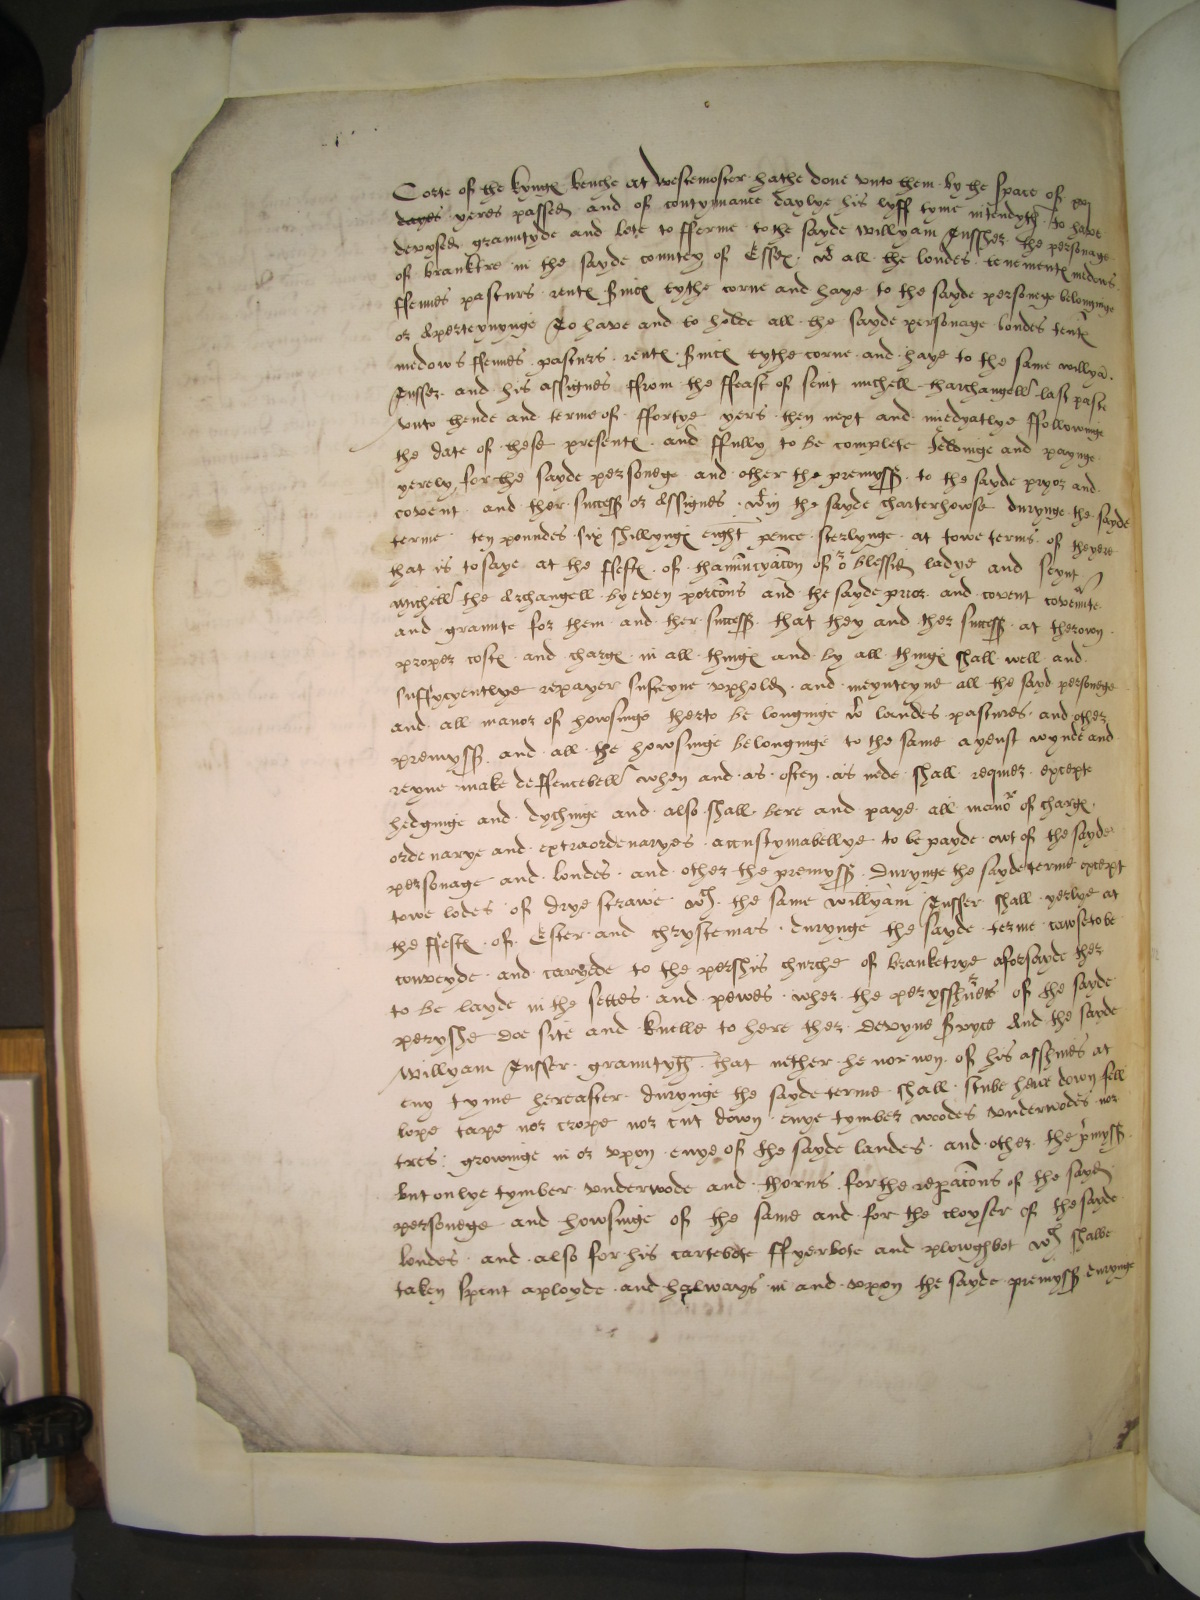 Corte of the kyngs benche at Westemoster hathe done unto them by the space of xvj
dayes yeres passed and of contynuance daylye his lyff tyme intendyth to have
devysed grauntyde and lete to fferme to the sayde Willyam the personage
of branktre in the sayde countey of Essex wt all the londes tenements medows
ffennes pasturs rents tythe corne and haye to the sayde personege belonginge
or aperteynynge To have and to holde all the sayde personage londes tents
medows ffennes pasturs rents tythe corne and haye to the same willyam
and his assignes ffrom the ffeast of seint michell tharchangell last paste
unto thende and terme of ffortye yers then next and imedyatlye ffollowinge
the date of these presents and ffully to be complete yeldinge and paynge
yerely for the sayde personege and other the premyss to the sayde pryor and
covent and ther success or assignes wtin the sayde charterhowse durynge the sayde
terme ten poundes six shillyngs eight pence sterlynge at towe terms of the yere
that is to saye at the ffests of thanncyacon of or blessid ladye and seynt
Michell the archangell by even porcons and the sayde prior and covent covennte
and graunte for them and ther success that they and ther success at ther own
proper costs and chargs in all things and by all things shall well and
suffycyentlye repayer susteyne upholde and meynteyne all the sayd personege
and all manor of howsings therto be longinge wt landes pastures and other
premyss and all the howsinge belonginge to the same ayenst wynde and
reyne make deffencebell when and as often as nede shall requier excepte
hedginge and dychinge and also shall bere and paye all manor of chargs
ordenarye and extraordenaryes accustymabellye to be payde owt of the sayde
personage and londes and other the premyss durynge the sayde terme except
towe lodes of drye strawe wch the same willyam shall yerlye at
the ffests of Ester and chrystemas durynge the sayde terme cawse to be
conveyde and caryede to the pershis churche of branketrye aforsayde ther
to be layde in the settes and pewes wher the of the sayde
peryshe doe site and knelle to here ther devyne svyce And the sayde
Willyam grauntyth that nether he nor non of his assines at
eny tyme hereafter durynge the sayde terme shall stube hewe down fell
lope tape nor crope nor cut down enye tymber woodes underwodes nor
tres growinge in or upon enye of the sayde landes and other the pmyss
but onlye tymber underwode and thorns for the repacons of the sayde
personege and howsinge of the same and for the cloyser of the sayde
londes and also for his cartebote ffyerbote and plowghbot wch shalbe
taken spent aployde and halways in and upon the sayde premyss durynge